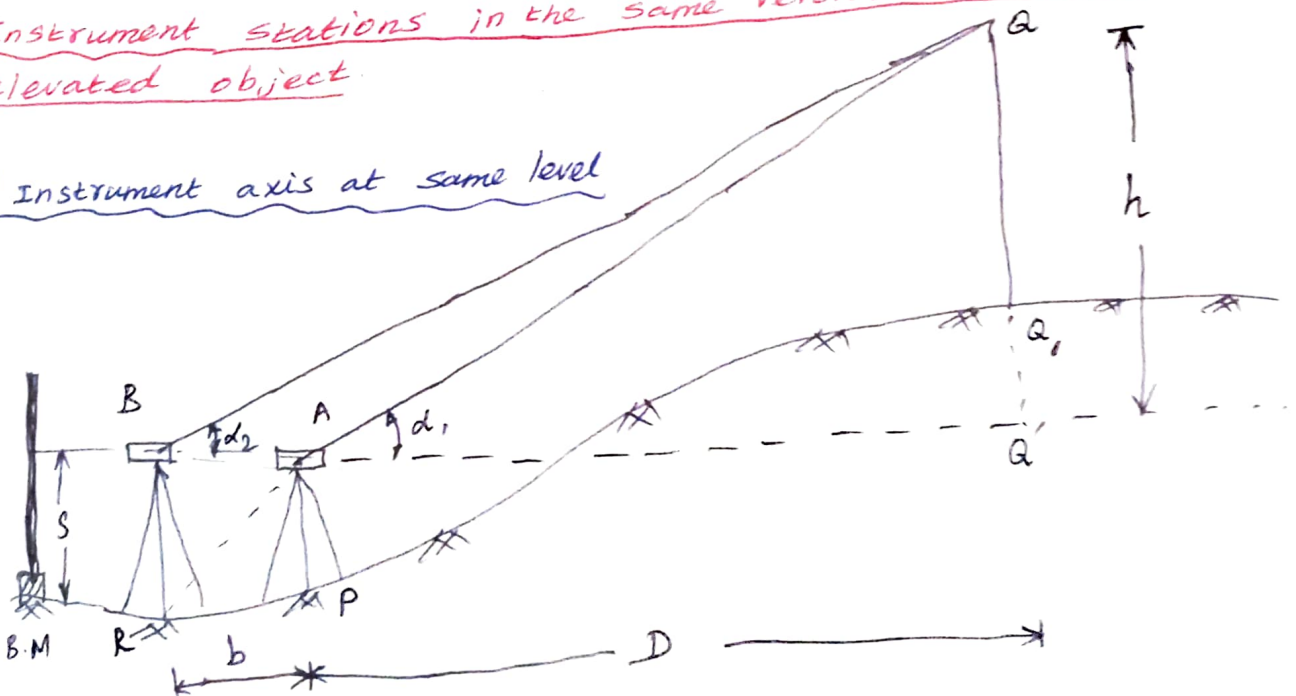 Instrument stations in the same
elevated object
Instrument axis at same level
Q
h
B
A
α2
α1
Q1
Q'
S
P
B.M
R
b
D